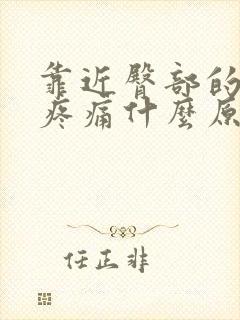 靠近臀部的
疼痛什麼原
任正非